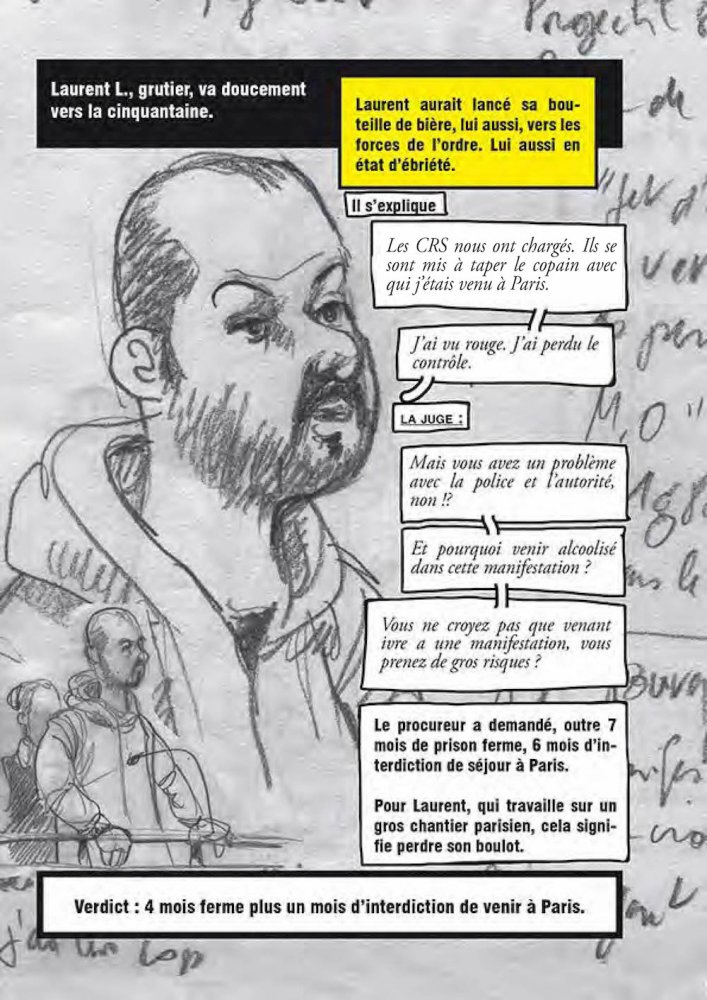 Projectil
Laurent L., grutier, va doucement
vers la cinquantaine.
Laurent aurait lancé sa bou-
teille de bière, lui aussi, vers les
forces de l'ordre. Lui aussi en
état d'ébriété.
Il s'explique
Les CRS nous ont chargés. Ils se
sont mis à taper le copain avec
qui j'étais venu à Paris.
J'ai vu rouge. J'ai perdu le
contrôle.
LA JUGE :
Mais vous avez un problème
avec la police et l'autorité,
non !?
Et pourquoi venir alcoolisé
dans cette manifestation ?
Vous ne croyez pas que venant
ivre a une manifestation, vous
prenez de gros risques ?
Le procureur a demandé, outre 7
mois de prison ferme, 6 mois d'in-
terdiction de séjour à Paris.
Pour Laurent, qui travaille sur un
gros chantier parisien, cela signi-
fie perdre son boulot.
Verdict : 4 mois ferme plus un mois d'interdiction de venir à Paris.